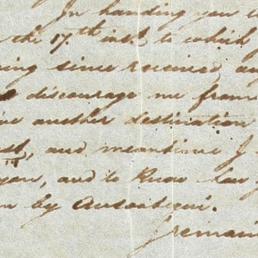 In handing you
the 17th inst to which
since received
discourage me from
another destination
and meantime I
you, and to know how
by
remain